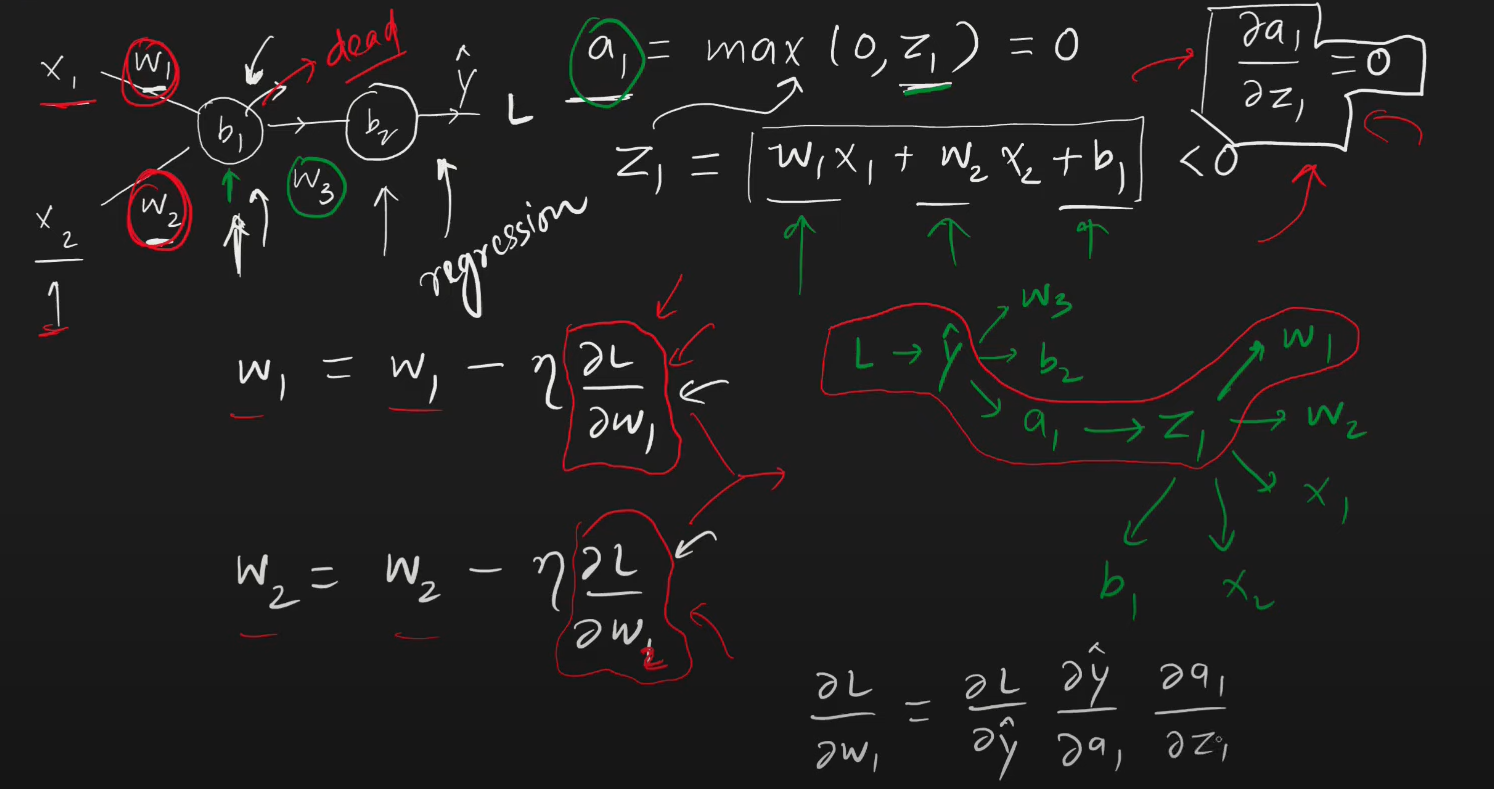 x₁ w₁ dead ŷ
b₁ b₂ L
w₃
x₂ w₂
1
regression
a₁ = max (0, z₁) = 0
∂a₁/∂z₁ = 0
z₁ = w₁x₁ + w₂x₂ + b₁ < 0
w₁ = w₁ − η ∂L/∂w₁
w₂ = w₂ − η ∂L/∂w₂
w₃
L → ŷ → b₂ w₁
a₁ → z₁ → w₂
x₁
b₁ x₂
∂L/∂w₁ = ∂L/∂ŷ ∂ŷ/∂a₁ ∂a₁/∂z₁